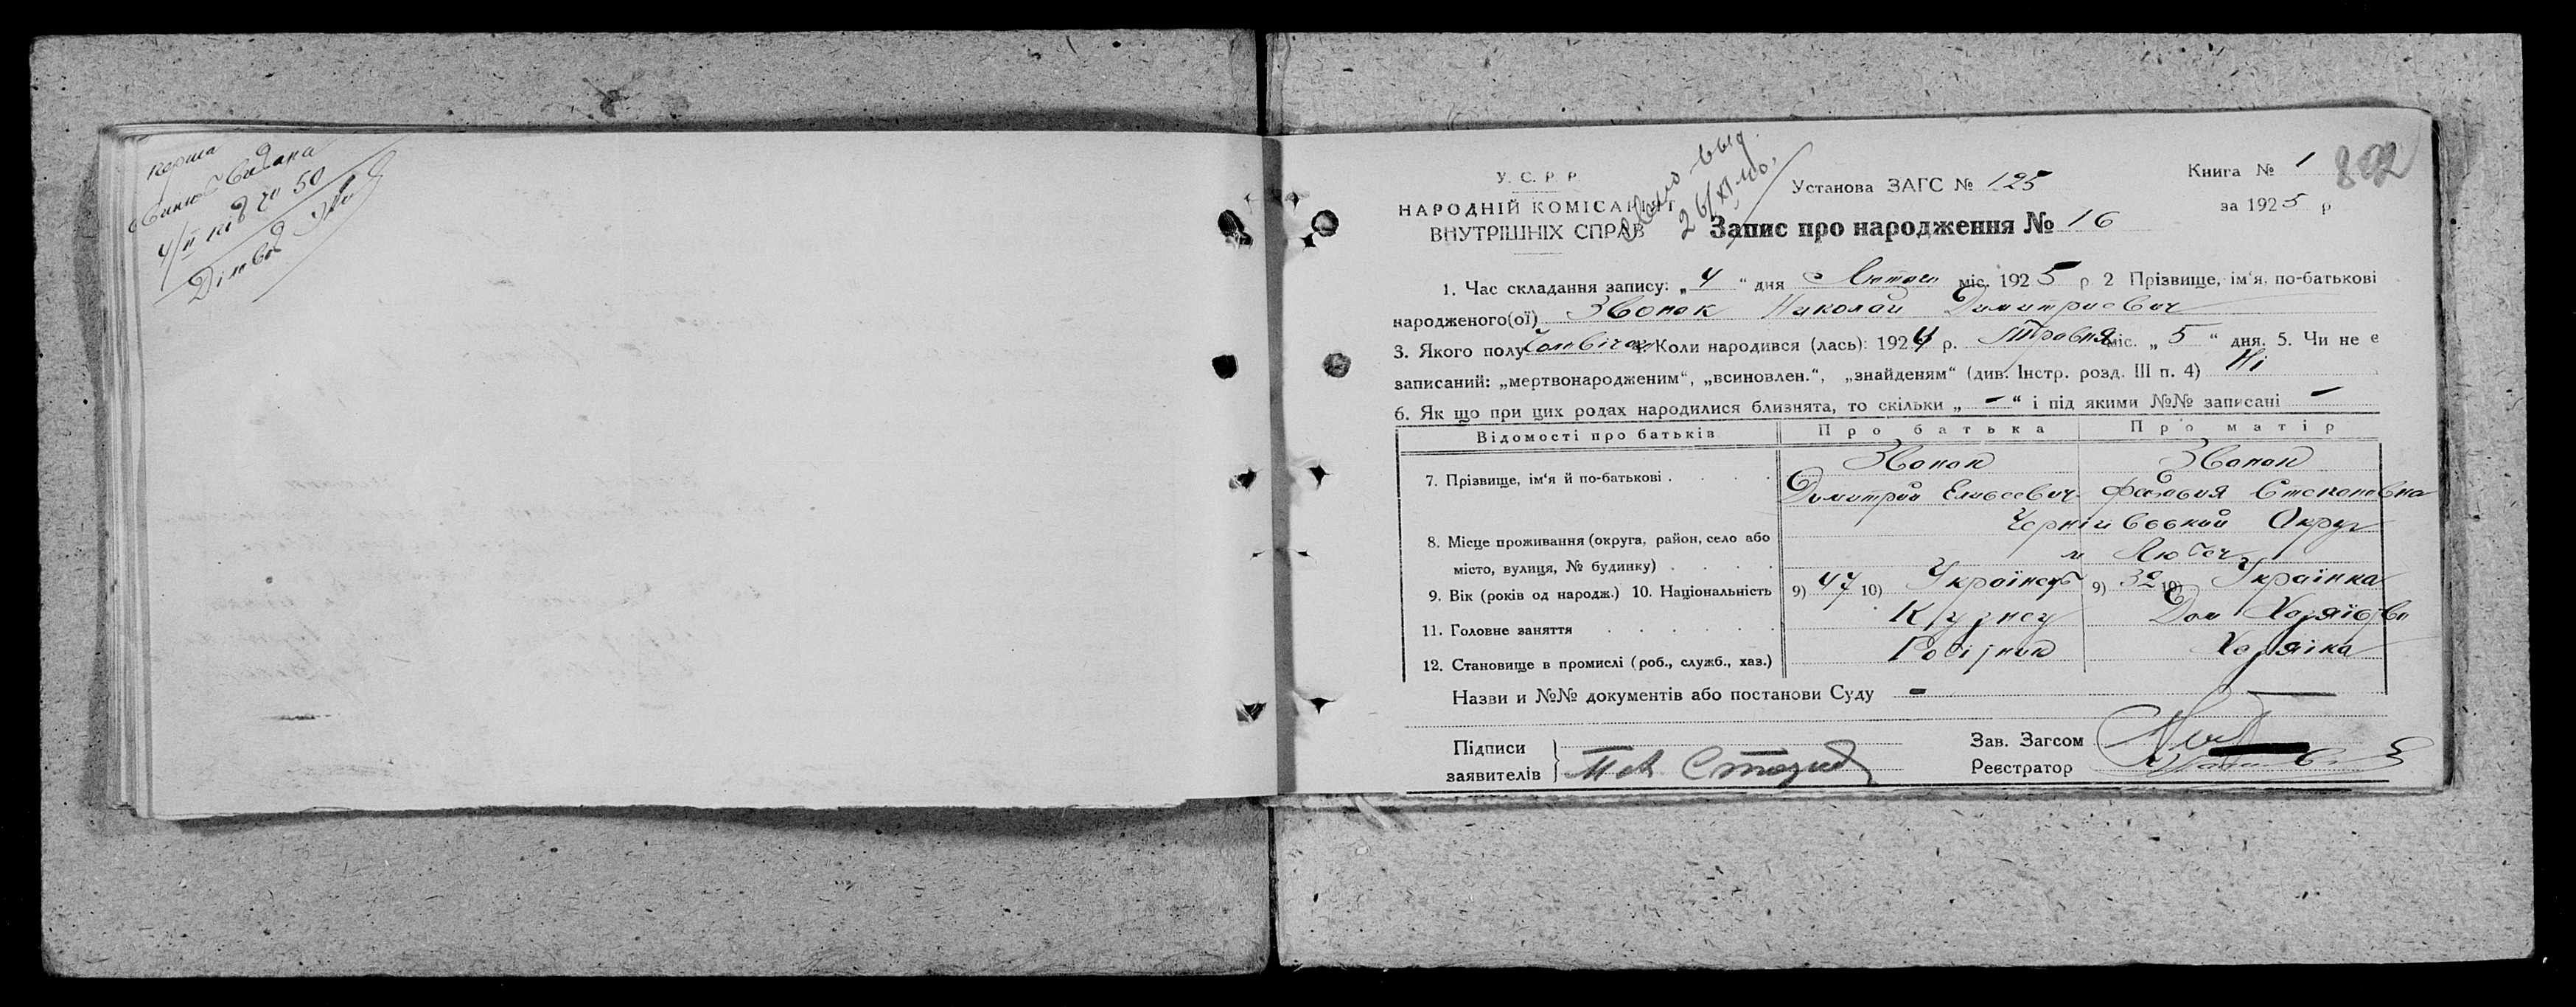 видана
50
У. С. Р. Р.
НАРОДНІЙ КОМІСАРІЯТ
ВНУТРІШНІХ СПРАВ
выд.
Установа ЗАГС № 125
Книга № 1
802
за 1925 р
Запис про народження № 16
1. Час складання запису: „ 4 “ дня Лютого міс. 1925 р 2 Прізвище, ім‘я, по-батькові
народженого(ої) Звонок Николай Димитриевич
3. Якого полу Чоловічого 4. Коли народився (лась): 1924 р. Травня міс. „ 5 “ дня. 5. Чи не є
записаний: „мертвонародженим“, „всиновлен.“, „знайденям“ (див. Інстр. розд. III п. 4) Ні
6. Як що при цих родах народилися близнята, то скільки „ - “ і під якими №№ записані -
Відомості про батьків Про батька Про матір
7. Прізвище, ім‘я й по-батькові . . . . Звонок Звонок
Димитрий Елисеевич Федосия Степановна
8. Місце проживання (округа, район, село або Чернігівський Округ
місто, вулиця, № будинку) . . . . м Любеч
9. Вік (років од народж.) 10. Національність 9) 47 10) Українець 9) 32 10) Українка
11. Головне заняття . . . . . Кузнец Дом Хозяїство
12. Становище в промислі (роб., служб., хаз.) Робізник Хозяіка
Назви и №№ документів або постанови Суду -
Підписи
заявителів
Зав. Загсом
Реєстратор